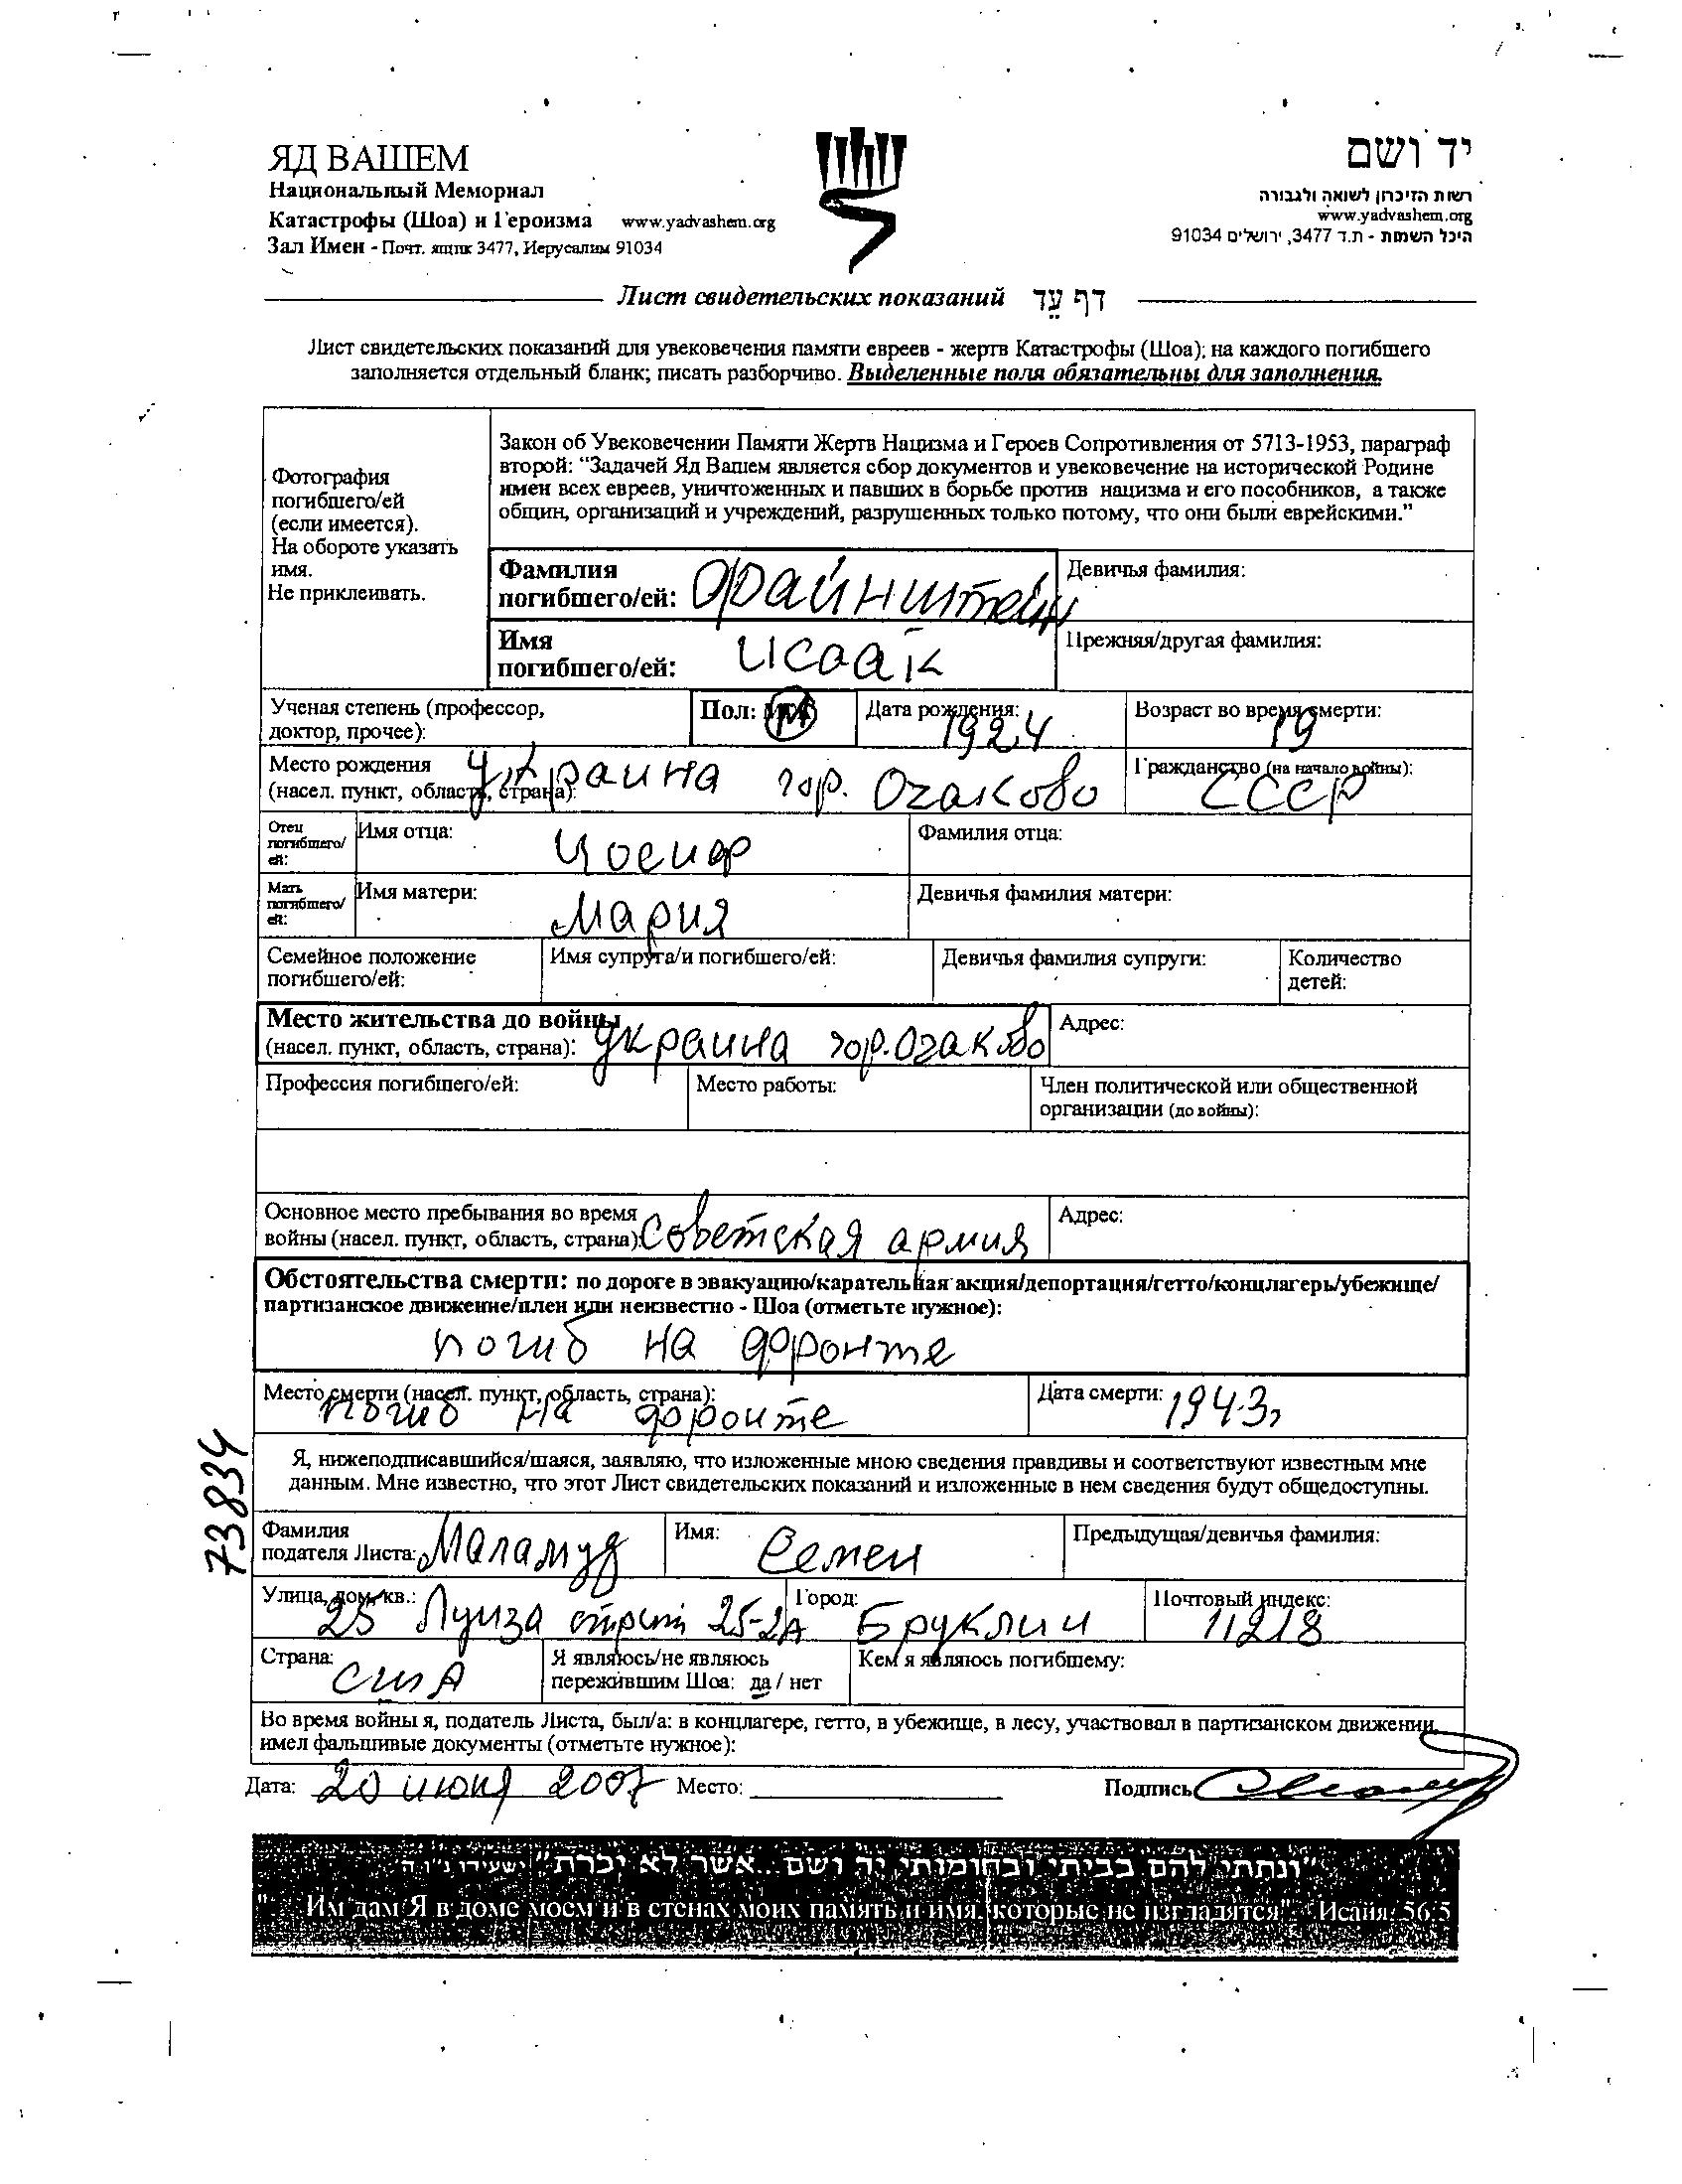 ЯД ВАШЕМ
Национальный Мемориал
Катастрофы (Шоа) и Героизма www.yadvashem.org
Зал Имен - Почт. ящик 3477, Иерусалим 91034
יד ושם
רשות הזיכרון לשואה ולגבורה
www.yadvashem.org
היכל השמות - ת.ד 3477, ירושלים 91034
Лист свидетельских показаний דף עֵד
Лист свидетельских показаний для увековечения памяти евреев - жертв Катастрофы (Шоа); на каждого погибшего
заполняется отдельный бланк; писать разборчиво. Выделенные поля обязательны для заполнения.
Фотография
погибшего/ей
(если имеется).
На обороте указать
имя.
Не приклеивать.
Закон об Увековечении Памяти Жертв Нацизма и Героев Сопротивления от 5713-1953, параграф
второй: “Задачей Яд Вашем является сбор документов и увековечение на исторической Родине
имен всех евреев, уничтоженных и павших в борьбе против нацизма и его пособников, а также
общин, организаций и учреждений, разрушенных только потому, что они были еврейскими.”
Фамилия
погибшего/ей: Файнштейн
Девичья фамилия:
Имя
погибшего/ей: Исаак
Прежняя/другая фамилия:
Ученая степень (профессор,
доктор, прочее):
Пол: М
Дата рождения: 1924
Возраст во время смерти: 19
Место рождения
(насел. пункт, область, страна): Украина гор. Очаково
Гражданство (на начало войны): СССР
Отец
погибшего/
ей:
Имя отца: Иосиф
Фамилия отца:
Мать
погибшего/
ей:
Имя матери: Мария
Девичья фамилия матери:
Семейное положение
погибшего/ей:
Имя супруга/и погибшего/ей:
Девичья фамилия супруги:
Количество
детей:
Место жительства до войны
(насел. пункт, область, страна): Украина гор. Очаково
Адрес:
Профессия погибшего/ей:
Место работы:
Член политической или общественной
организации (до войны):
Основное место пребывания во время
войны (насел. пункт, область, страна): Советская армия
Адрес:
Обстоятельства смерти: по дороге в эвакуацию/карательная акция/депортация/гетто/концлагерь/убежище/
партизанское движение/плен или неизвестно - Шоа (отметьте нужное):
погиб на фронте
Место смерти (насел. пункт, область, страна):
погиб на фронте
Дата смерти: 1943г
73834
Я, нижеподписавшийся/шаяся, заявляю, что изложенные мною сведения правдивы и соответствуют известным мне
данным. Мне известно, что этот Лист свидетельских показаний и изложенные в нем сведения будут общедоступны.
Фамилия
подателя Листа: Маламуд
Имя: Семен
Предыдущая/девичья фамилия:
Улица, дом, кв.: 25 Луиза стрит 25-2А
Город: Бруклин
Почтовый индекс: 11218
Страна: США
Я являюсь/не являюсь
пережившим Шоа: да / нет
Кем я являюсь погибшему:
Во время войны я, податель Листа, был/а: в концлагере, гетто, в убежище, в лесу, участвовал в партизанском движении,
имел фальшивые документы (отметьте нужное):
Дата: 20 июня 2007 Место: Подпись
"ונתתי להם בביתי ובחומותי יד ושם...אשר לא יכרת" ישעיהו נ"ו ה
"...Им дам Я в доме моем и в стенах моих память и имя, которые не изгладятся" Исаия 56:5